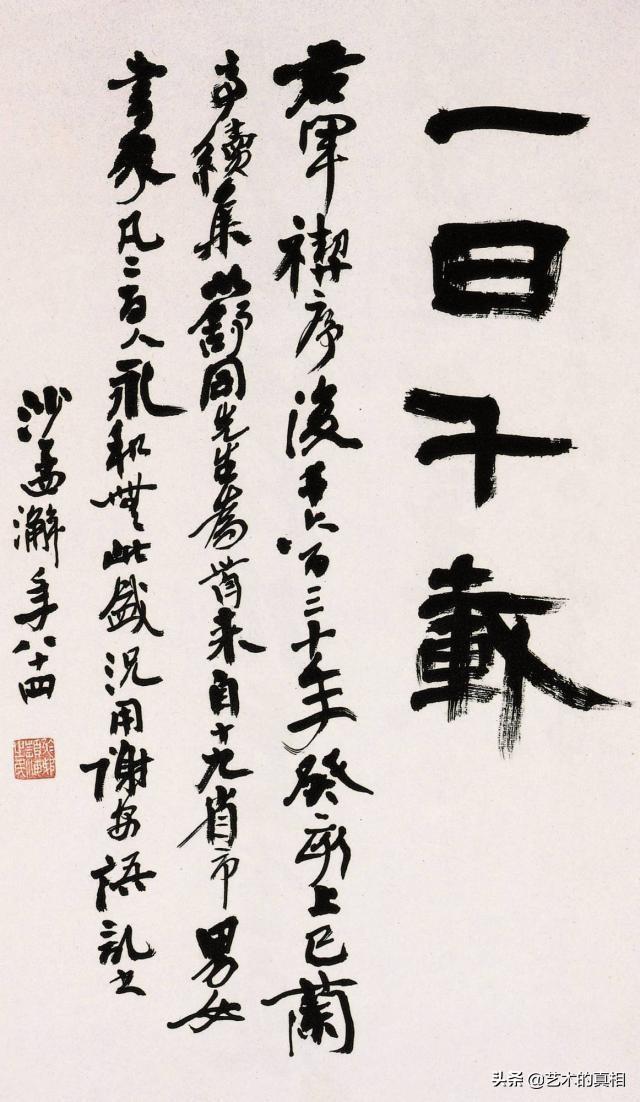 一日千載
右軍禊序後千六百三十年癸亥上巳蘭
亭續集以舒同先生為首來自十九省市男女
書家凡二百人永和無此盛況用謝安語記之
沙孟澥年八十四
头条 @艺术的真相